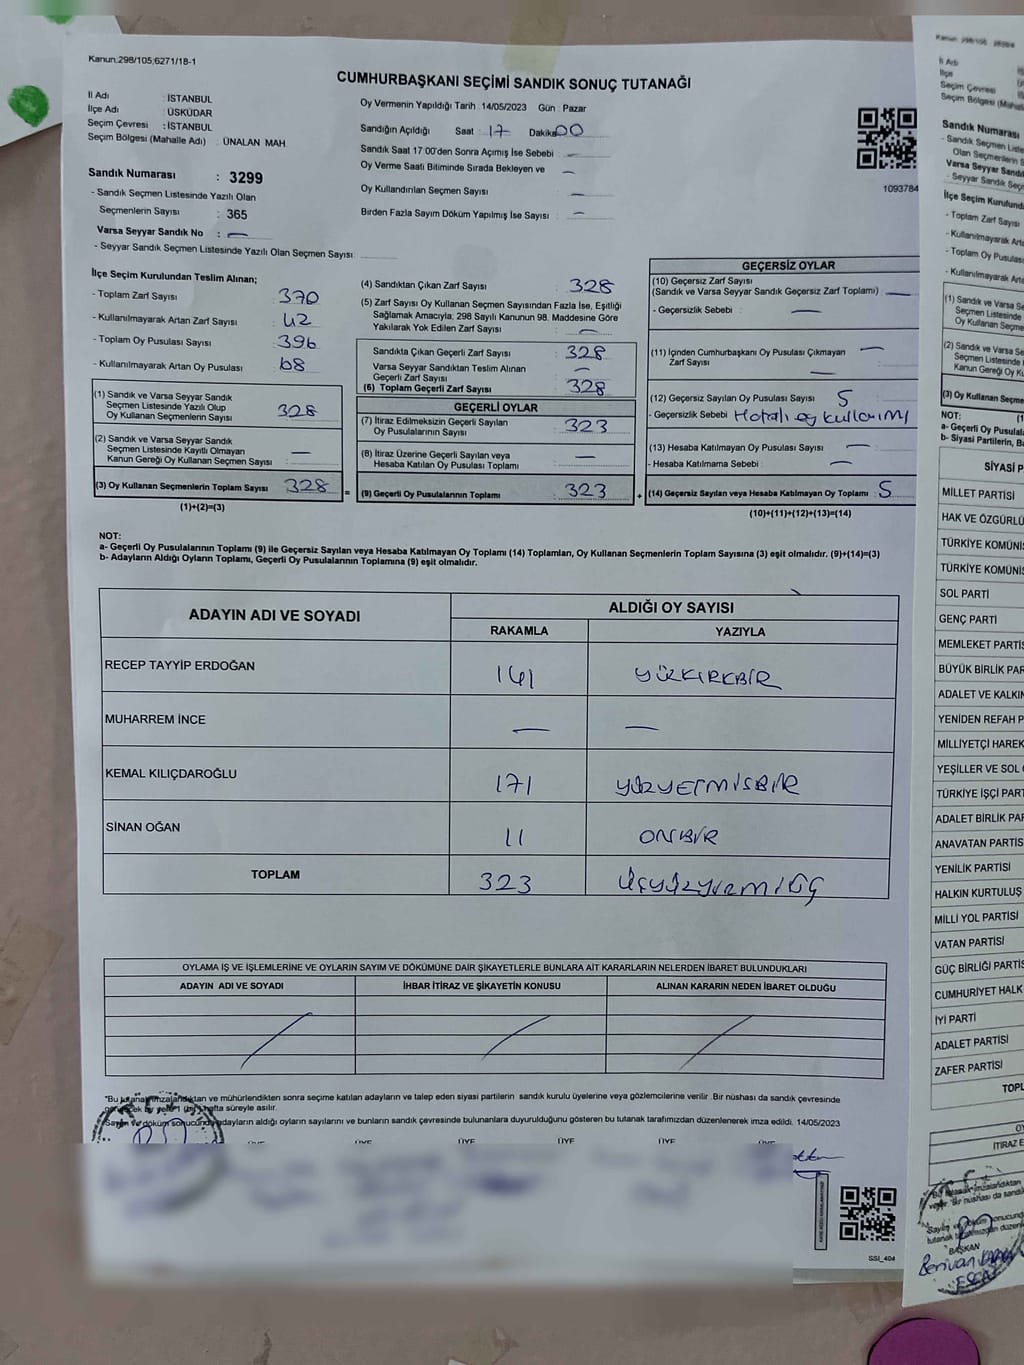 Kanun;298/105;6271/18-1
CUMHURBAŞKANI SEÇİMİ SANDIK SONUÇ TUTANAĞI
İl Adı : İSTANBUL
İlçe Adı : ÜSKÜDAR
Seçim Çevresi : İSTANBUL
Seçim Bölgesi (Mahalle Adı) : ÜNALAN MAH
Sandık Numarası : 3299
- Sandık Seçmen Listesinde Yazılı Olan
Seçmenlerin Sayısı : 365
Varsa Seyyar Sandık No : —
- Seyyar Sandık Seçmen Listesinde Yazılı Olan Seçmen Sayısı :
Oy Vermenin Yapıldığı Tarih : 14/05/2023 Gün : Pazar
Sandığın Açıldığı Saat : 17 Dakika 00
Sandık Saat 17:00'den Sonra Açımış İse Sebebi : —
Oy Verme Saati Bitiminde Sırada Bekleyen ve —
Oy Kullandırılan Seçmen Sayısı : —
Birden Fazla Sayım Döküm Yapılmış İse Sayısı : —
1093784
İlçe Seçim Kurulundan Teslim Alınan;
- Toplam Zarf Sayısı : 370
- Kullanılmayarak Artan Zarf Sayısı : 42
- Toplam Oy Pusulası Sayısı : 396
- Kullanılmayarak Artan Oy Pusulası : 68
(1) Sandık ve Varsa Seyyar Sandık
Seçmen Listesinde Yazılı Olup
Oy Kullanan Seçmenlerin Sayısı : 328
(2) Sandık ve Varsa Seyyar Sandık
Seçmen Listesinde Kayıtlı Olmayan
Kanun Gereği Oy Kullanan Seçmen Sayısı : —
(3) Oy Kullanan Seçmenlerin Toplam Sayısı : 328
(1)+(2)=(3)
(4) Sandıktan Çıkan Zarf Sayısı : 328
(5) Zarf Sayısı Oy Kullanan Seçmen Sayısından Fazla İse, Eşitliği
Sağlamak Amacıyla; 298 Sayılı Kanunun 98. Maddesine Göre
Yakılarak Yok Edilen Zarf Sayısı : —
Sandıkta Çıkan Geçerli Zarf Sayısı : 328
Varsa Seyyar Sandıktan Teslim Alınan
Geçerli Zarf Sayısı : —
(6) Toplam Geçerli Zarf Sayısı : 328
GEÇERLİ OYLAR
(7) İtiraz Edilmeksizin Geçerli Sayılan
Oy Pusulalarının Sayısı : 323
(8) İtiraz Üzerine Geçerli Sayılan veya
Hesaba Katılan Oy Pusulası Toplamı : —
= (9) Geçerli Oy Pusulalarının Toplamı : 323
GEÇERSİZ OYLAR
(10) Geçersiz Zarf Sayısı
(Sandık ve Varsa Seyyar Sandık Geçersiz Zarf Toplamı) : —
- Geçersizlik Sebebi : —
(11) İçinden Cumhurbaşkanı Oy Pusulası Çıkmayan : —
Zarf Sayısı —
(12) Geçersiz Sayılan Oy Pusulası Sayısı : 5
- Geçersizlik Sebebi : Hatalı oy kullanımı
(13) Hesaba Katılmayan Oy Pusulası Sayısı : —
- Hesaba Katılmama Sebebi : —
+ (14) Geçersiz Sayılan veya Hesaba Katılmayan Oy Toplamı : 5
(10)+(11)+(12)+(13)=(14)
NOT:
a- Geçerli Oy Pusulalarının Toplamı (9) ile Geçersiz Sayılan veya Hesaba Katılmayan Oy Toplamı (14) Toplamları, Oy Kullanan Seçmenlerin Toplam Sayısına (3) eşit olmalıdır. (9)+(14)=(3)
b- Adayların Aldığı Oyların Toplamı, Geçerli Oy Pusulalarının Toplamına (9) eşit olmalıdır.
ADAYIN ADI VE SOYADI ALDIĞI OY SAYISI
RAKAMLA YAZIYLA
RECEP TAYYİP ERDOĞAN 141 YÜZKIRKBİR
MUHARREM İNCE — —
KEMAL KILIÇDAROĞLU 171 YÜZYETMİSBİR
SİNAN OĞAN 11 ONBİR
TOPLAM 323 üçyüzyirmiüç
OYLAMA İŞ VE İŞLEMLERİNE VE OYLARIN SAYIM VE DÖKÜMÜNE DAİR ŞİKAYETLERLE BUNLARA AİT KARARLARIN NELERDEN İBARET BULUNDUKLARI
ADAYIN ADI VE SOYADI İHBAR İTİRAZ VE ŞİKAYETİN KONUSU ALINAN KARARIN NEDEN İBARET OLDUĞU
"Bu tutanak imzalandıktan ve mühürlendikten sonra seçime katılan adayların ve talep eden siyasi partilerin sandık kurulu üyelerine veya gözlemcilerine verilir. Bir nüshası da sandık çevresinde
görülecek bir yere 1 (bir) hafta süreyle asılır.
Sayım ve döküm sonucunda adayların aldığı oyların sayılarını ve bunların sandık çevresinde bulunanlara duyurulduğunu gösteren bu tutanak tarafımızdan düzenlenerek imza edildi. 14/05/2023
ÜYE ÜYE ÜYE ÜYE ÜYE
SSI_404
İl Adı
İlçe
Seçim Çevresi
Seçim Bölgesi (Mahal
Sandık Numarası
- Sandık Seçmen Liste
Olan Seçmenlerin S
Varsa Seyyar Sandı
- Seyyar Sandık Seç
İlçe Seçim Kurulund
- Toplam Zarf Sayısı
- Kullanılmayarak Arta
- Toplam Oy Pusulas
- Kullanılmayarak Arta
(1) Sandık ve Varsa Se
Seçmen Listesinde
Oy Kullanan Seçm
(2) Sandık ve Varsa
Seçmen Listesinde
Kanun Gereği Oy Ku
(3) Oy Kullanan Seçme
NOT:
a- Geçerli Oy Pusula
b- Siyasi Partilerin, B
SİYASİ P
MİLLET PARTİSİ
HAK VE ÖZGÜRLÜ
TÜRKİYE KOMÜNİS
TÜRKİYE KOMÜNİS
SOL PARTİ
GENÇ PARTİ
MEMLEKET PARTİS
BÜYÜK BİRLİK PAR
ADALET VE KALKIN
YENİDEN REFAH P
MİLLİYETÇİ HAREK
YEŞİLLER VE SOL
TÜRKİYE İŞÇİ PART
ADALET BİRLİK PAR
ANAVATAN PARTİS
YENİLİK PARTİSİ
HALKIN KURTULUŞ
MİLLİ YOL PARTİSİ
VATAN PARTİSİ
GÜÇ BİRLİĞİ PARTİS
CUMHURİYET HALK
İYİ PARTİ
ADALET PARTİSİ
ZAFER PARTİSİ
TOPL
OY
İTİRAZ E
BAŞKAN
Berivan